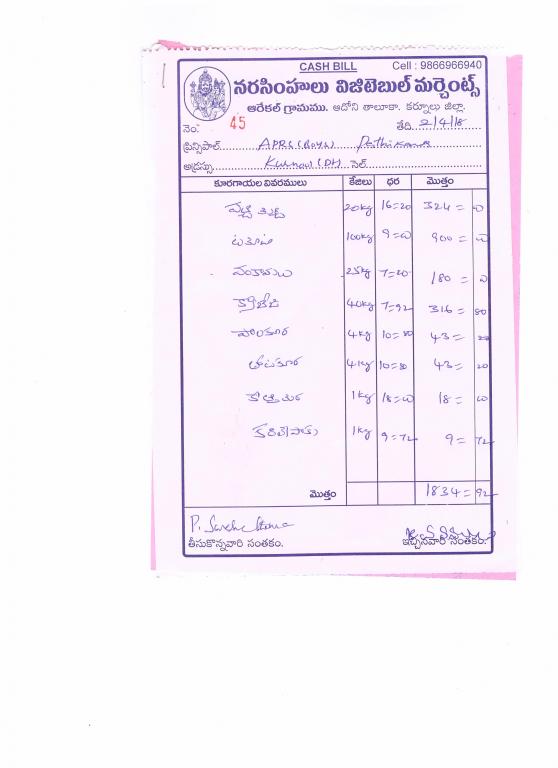 CASH BILL Cell : 9866966940
నరసింహులు విజిటెబుల్ మర్చెంట్స్
ఆరేకల్ గ్రామము. ఆదోని తాలూకా. కర్నూలు జిల్లా.
నెం. 45 తేది. 2/4/18
ప్రిన్సిపాల్ APRS (Boys)
అడ్రస్సు Kurnool (Dt) సెల్
కూరగాయల వివరములు కేజీలు ధర మొత్తం
20kg 16=20 324=
టమోటా 100kg 9=00 900=00
వంకాయలు 25kg 7=20 180=
క్యాబేజి 40kg 7=92 316=80
పాలకూర 4kg 10=80 43=20
తోటకూర 4kg 10=80 43=20
కొత్తిమీర 1kg 18=00 18=00
కరివేపాకు 1kg 9=72 9=72
మొత్తం 1834=92
తీసుకొన్నవారి సంతకం. ఇచ్చినవారి సంతకం.